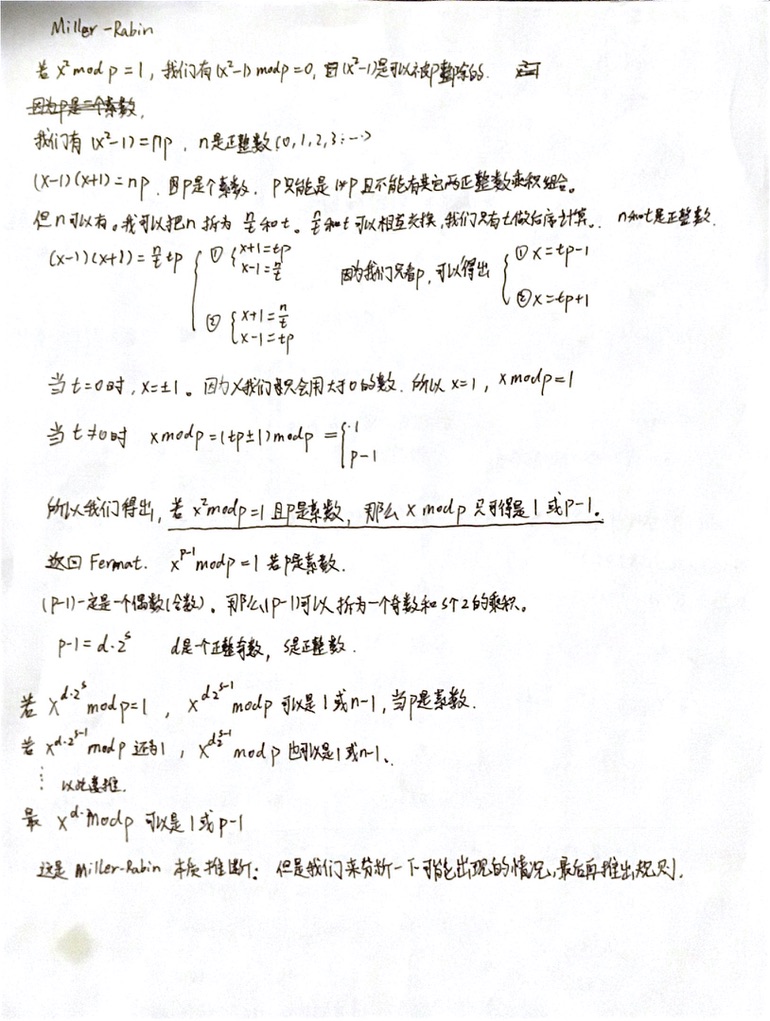 Miller-Rabin
若 x² mod p = 1, 我们有 (x²-1) mod p = 0, 即 (x²-1) 是可以被p整除的.
因为p是一个素数,
我们有 (x²-1) = np , n是正整数 (0,1,2,3……)
(x-1)(x+1) = np . 因p是个素数. p只能是 1*p 且不能有其它两正整数乘积组合。
但n可以有。我可以把n拆为 n/t 和 t。 n/t 和 t 可以相互交换, 我们只有t做后序计算。. n和t是正整数.
(x-1)(x+1) = n/t tp { ① { x+1=tp x-1=n/t ② { x+1=n/t x-1=tp 因为我们只看p, 可以得出 { ① x=tp-1 ② x=tp+1
当 t=0 时, x=±1 。因为x我们只会用大于0的数. 所以 x=1 , x mod p = 1
当 t≠0 时 x mod p = (tp±1) mod p = { 1 p-1
所以我们得出, 若 x² mod p = 1 且p是素数, 那么 x mod p 只可得是 1 或 p-1.
返回 Fermat. x^(p-1) mod p = 1 若p是素数.
(p-1)一定是一个偶数(合数) 。那么(p-1)可以拆为一个奇数和s个2的乘积。
p-1 = d·2^s d是一个正整奇数, s是正整数.
若 x^(d·2^s) mod p = 1 , x^(d2^(s-1)) mod p 可以是 1 或 n-1, 当p是素数.
若 x^(d·2^(s-1)) mod p 还为1 , x^(d2^(s-1)) mod p 也可以是 1 或 n-1、
⋮ 以此类推.
最 x^d mod p 可以是 1 或 p-1
这是 Miller-Rabin 本质推断: 但是我们来分析一下可能出现的情况, 最后再推出规则.